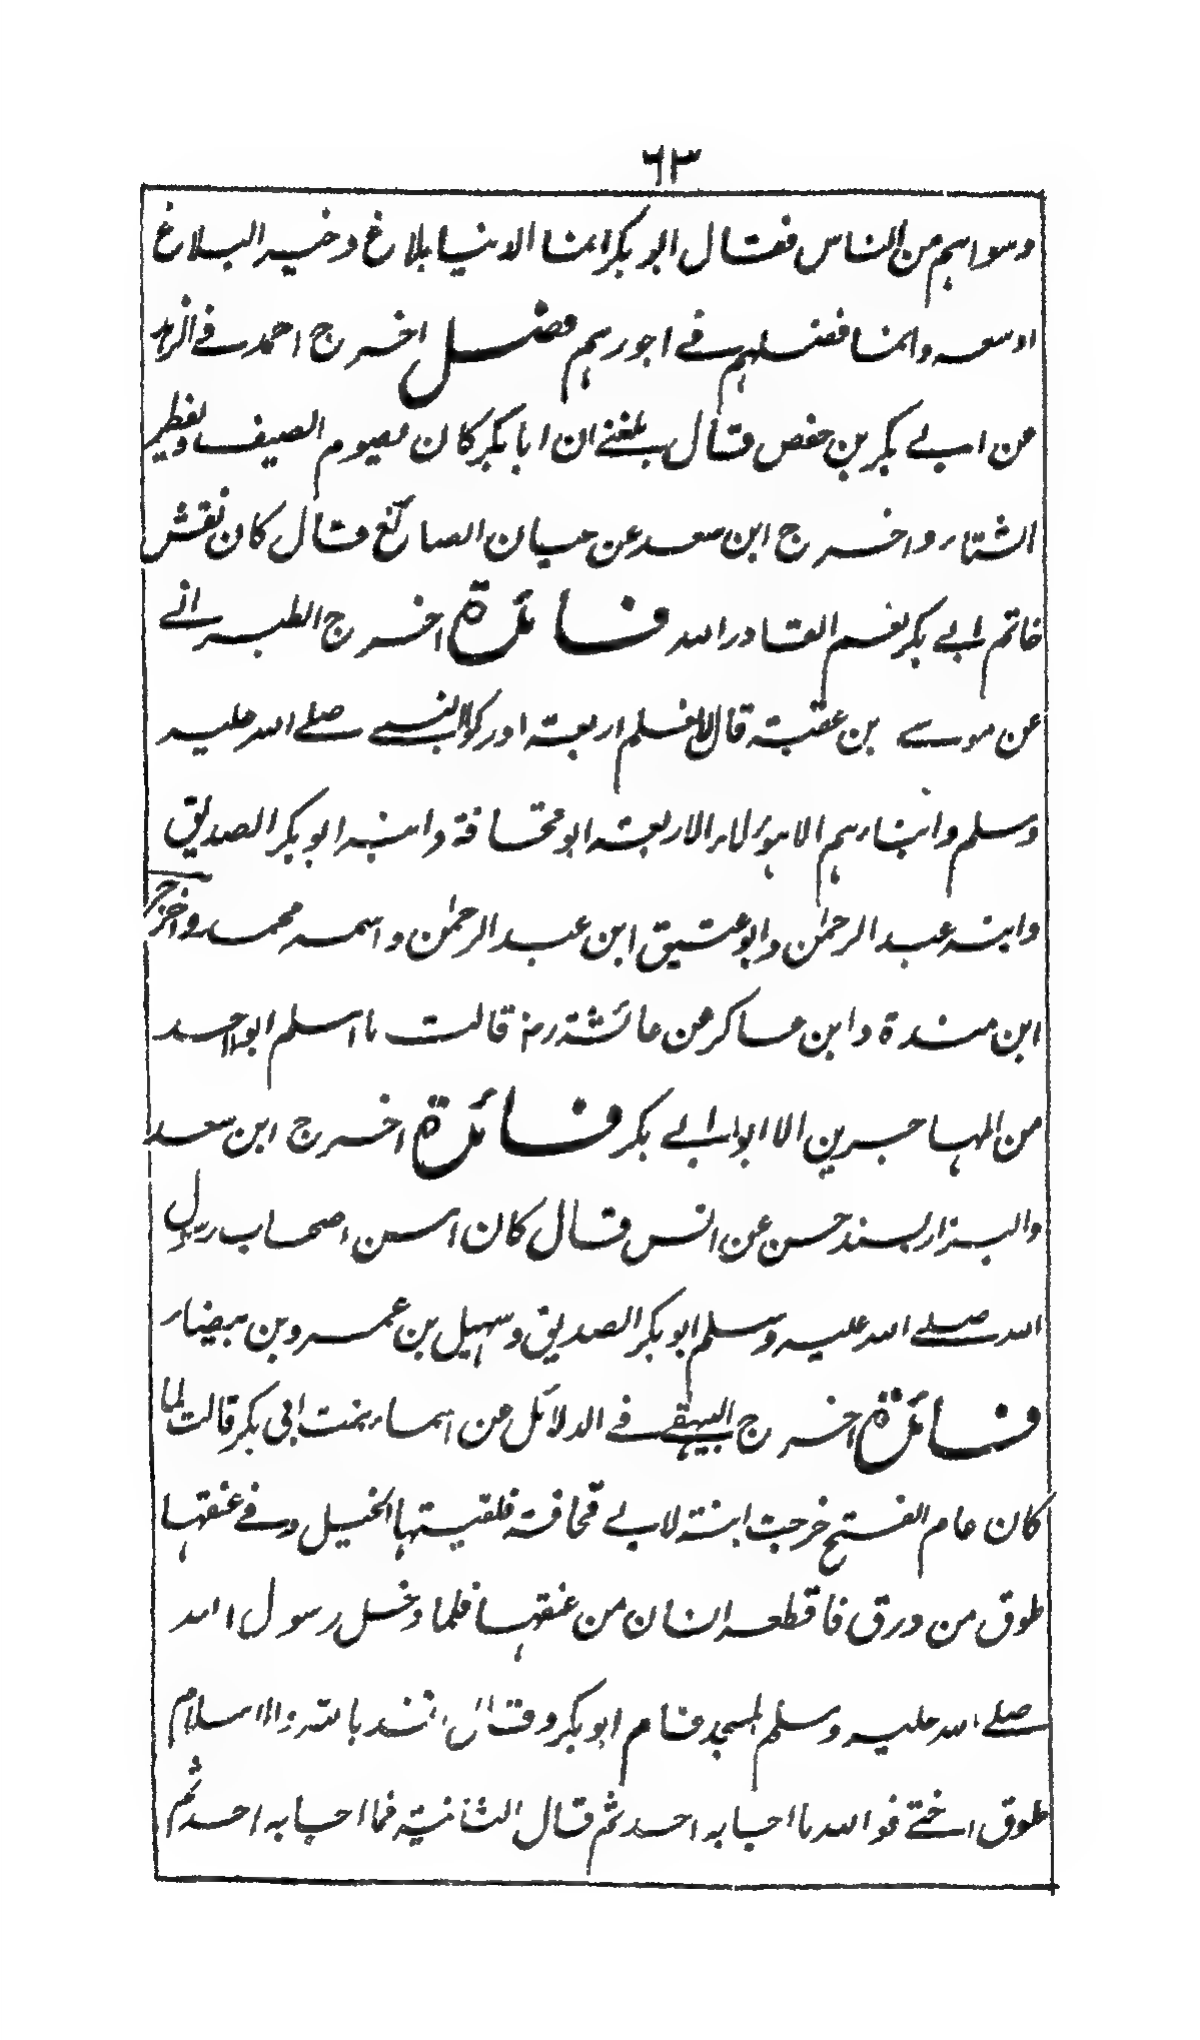 ٦٣
وسواهم من الناس فقال ابو بكر انما الدنيا بلاغ وخير البلاغ
اوسعه وانما فضلهم في اجورهم فصل اخرج احمد في الزهد
عن ابي بكر بن حفص قال بلغني ان ابا بكر كان يصوم الصيف ويفطر
الشتاء واخرج ابن سعد عن حيان الصائغ قال كان نقش
خاتم ابي بكر نعم القادر الله فائدة اخرج الطبراني
عن موسى بن عقبة قال لا نعلم اربعة ادركوا النبي صلى الله عليه
وسلم وابناءهم الا هؤلاء الاربعة ابو قحافة وابنه ابو بكر الصديق
وابنه عبد الرحمٰن وابو عتيق ابن عبد الرحمٰن واسمه محمد واخرج
ابن مندة وابن عساكر عن عائشة رضـ قالت ما اسلم ابو احد
من المهاجرين الا ابو ابي بكر فائدة اخرج ابن سعد
والبزار بسند حسن عن انس قال كان اسن اصحاب رسول
الله صلى الله عليه وسلم ابو بكر الصديق وسهيل بن عمرو بن بيضاء
فائدة اخرج البيهقي في الدلائل عن اسماء بنت ابي بكر قالت لما
كان عام الفتح خرجت ابنة لابي قحافة فلقيتها الخيل وفي عنقها
طوق من ورق فاقطعه انسان من عنقها فلما دخل رسول الله
صلى الله عليه وسلم المسجد قام ابو بكر وقال انشد بالله والاسلام
طوق اختي فوالله ما اجابه احد ثم قال الثانية فما اجابه احد ثم